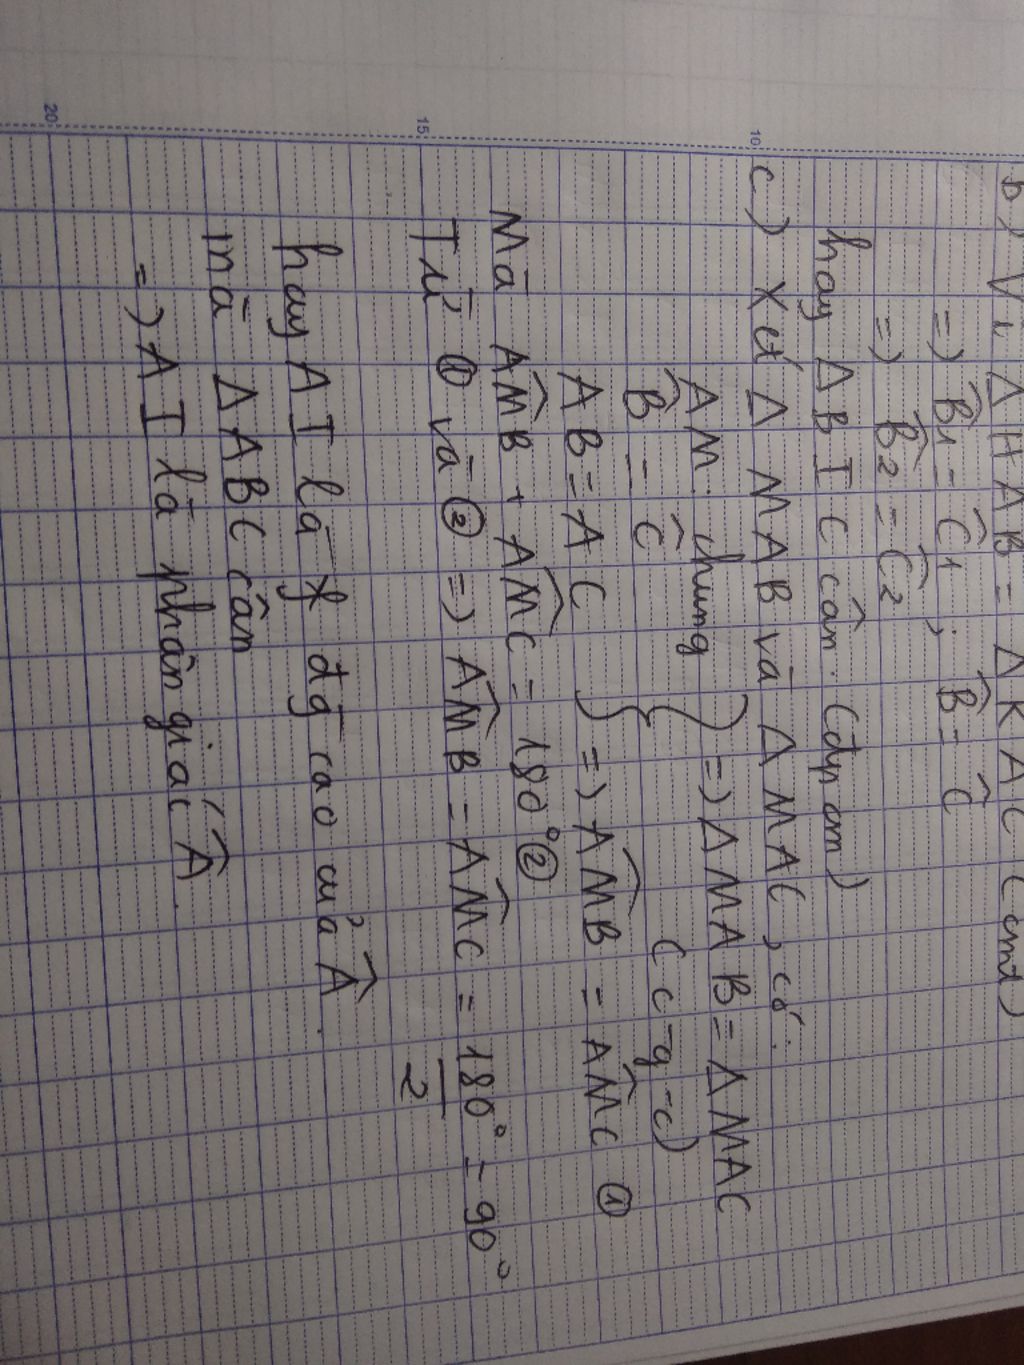 b) Vì ΔHAB = ΔKAC (cmt)
=) B̂1 = Ĉ1 ; B̂ = Ĉ
=) B̂2 = Ĉ2
hay ΔBIC cân. (đpcm)
10
c) Xét Δ MAB và Δ MAC, có:
AM: chung
B̂ = Ĉ
AB = AC
} =) Δ MAB = Δ MAC
(c-g-c)
=) AM̂B = AM̂C ①
Mà AM̂B + AM̂C = 180° ②
15
Từ ① và ② =) AM̂B = AM̂C = 180°/2 = 90°
hay AI là đg cao của Â.
mà ΔABC cân
=) AI là phân giác Â.
20